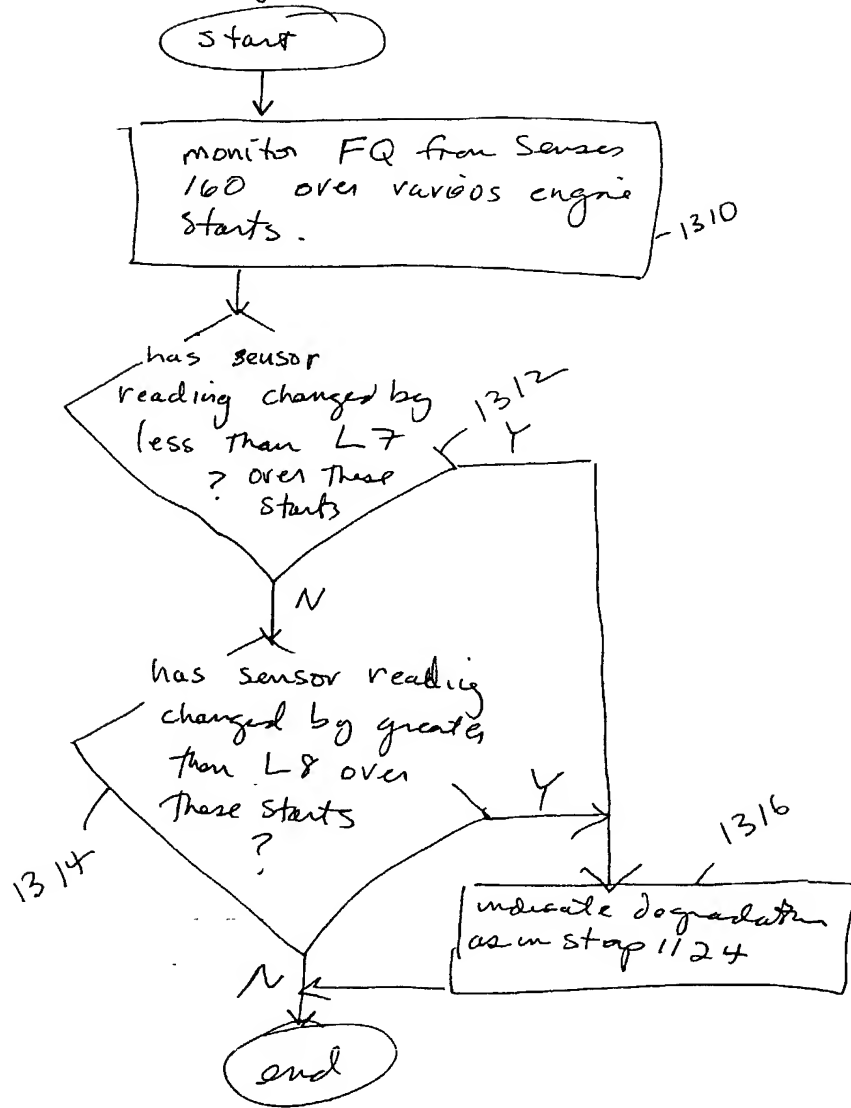 start
monitor FQ from Sensor
160 over various engine
starts.
1310
has sensor
reading changed by
less than L7
? over these
starts
1312
Y
N
has sensor reading
changed by greater
than L8 over
these starts
?
1314
Y
1316
indicate degradation
as in step 1124
N
end